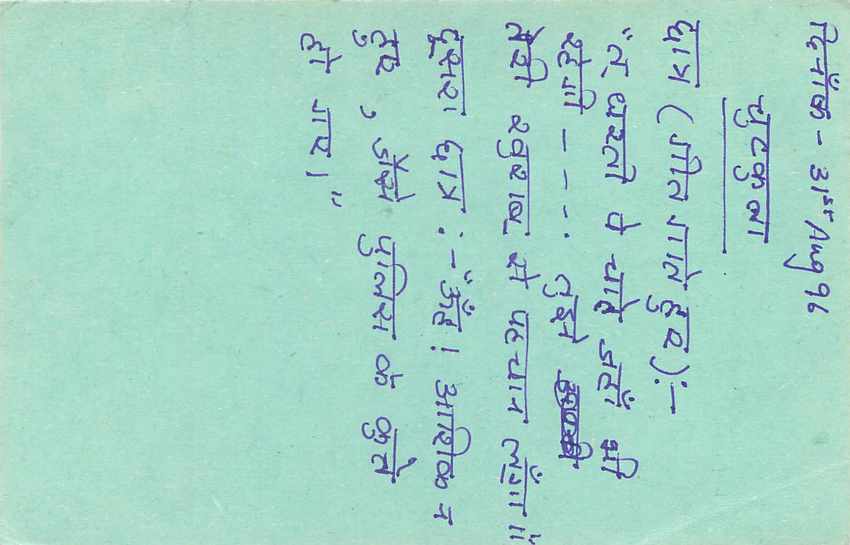 दिनाँक - 31st Aug 96
चुटकुला
छात्र (गीत गाते हुए):-
"तू धरती पे चाहे जहाँ भी
रहेगी - - - . तुझे
तेरी खुशबू से पहचान लूँगा॥"
दूसरा छात्र :- "ऊँह! आशिक न
हुए, जैसे पुलिस के कुत्ते
हो गए।"